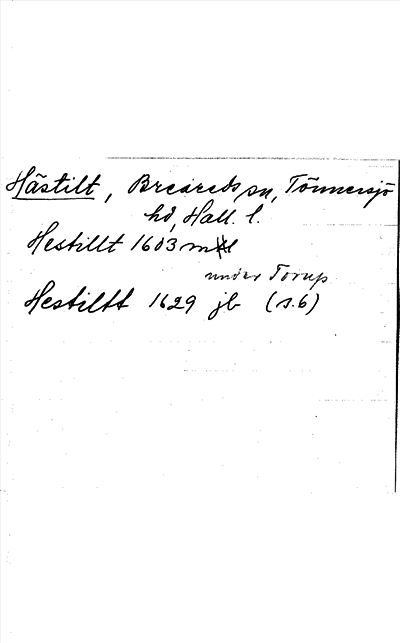 Hästilt, Breareds sn, Tönnersjö
hd, Hall. l.
Hestillt 1603 mtl
under Torup
Hestiltt 1629 jb (s.6)